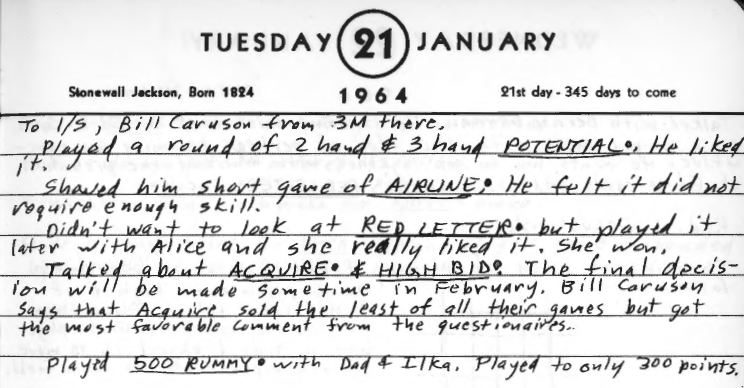 TUESDAY 21 JANUARY
Stonewall Jackson, Born 1824 1964 21st day - 345 days to come
To I/S, Bill Caruson from 3M there.
Played a round of 2 hand & 3 hand POTENTIAL. He liked
it.
Showed him short game of AIRLINE. He felt it did not
require enough skill.
Didn't want to look at RED LETTER. but played it
later with Alice and she really liked it. She won.
Talked about ACQUIRE. & HIGH BID. The final decis-
ion will be made sometime in February. Bill Caruson
says that Acquire sold the least of all their games but got
the most favorable comment from the questionaires..
Played 500 RUMMY. with Dad & Ilka. Played to only 300 points.